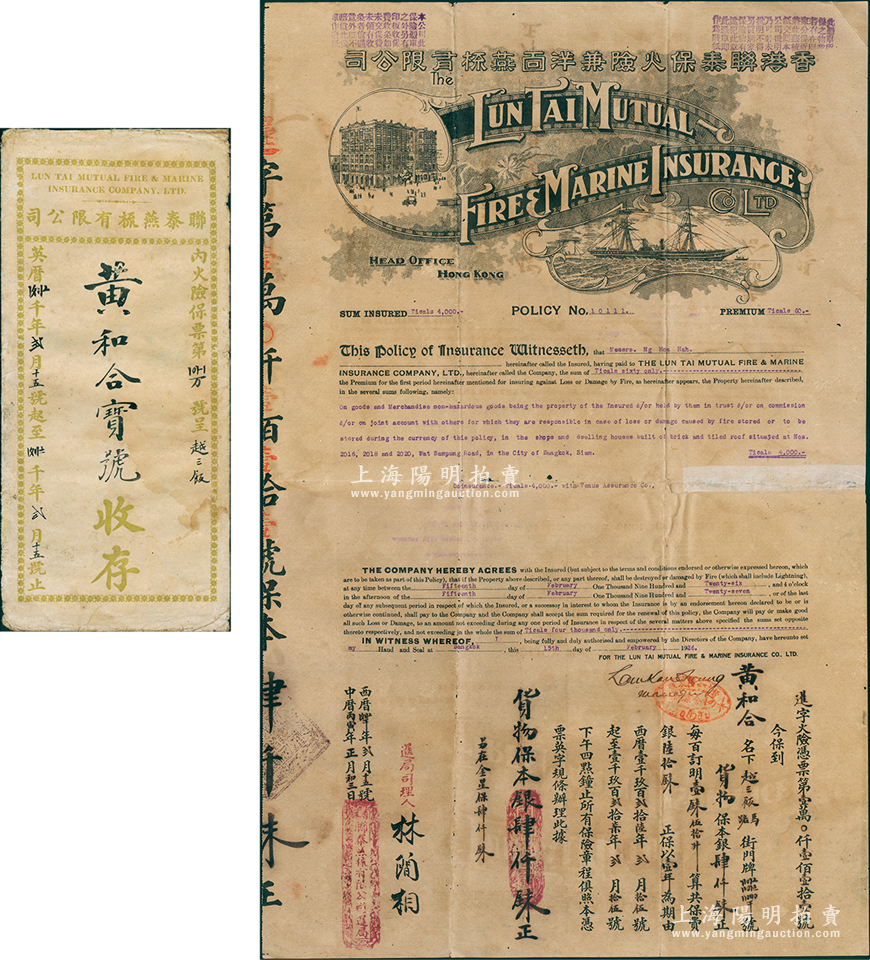 LUN TAI MUTUAL FIRE & MARINE
INSURANCE COMPANY, LTD.
司公限有梳燕泰聯
內火險保票第 號呈 越三飯
黃和合寶號
收存
英曆 千年 弍月十五號起至 千年 弍月十五號止
司公限有梳燕面洋兼險火保泰聯港香
The
LUN TAI MUTUAL
FIRE & MARINE INSURANCE
CO LTD
HEAD OFFICE
HONG KONG
SUM INSURED Ticals 4,000.- POLICY No. 10111. PREMIUM Ticals 60.-
This Policy of Insurance Witnesseth, that Messrs. Ng Woo Hah.
hereinafter called the Insured, having paid to THE LUN TAI MUTUAL FIRE & MARINE
INSURANCE COMPANY, LTD., hereinafter called the Company, the sum of Ticals sixty only.
the Premium for the first period hereinafter mentioned for insuring against Loss or Damage by Fire, as hereinafter appears, the Property hereinafter described,
in the several sums following, namely:
On goods and Merchandise non-hazardous goods being the property of the Insured &/or held by them in trust &/or on commission
&/or on joint account with others for which they are responsible in case of loss or damage caused by fire stored or to be
stored during the currency of this policy, in the shops and dwelling houses built of brick and tiled roof situated at Nos.
2016, 2018 and 2020, Wat Sampung Road, in the City of Bangkok, Siam. Ticals 4,000.-
Coinsurance.- Ticals 4,000.- with Venus Assurance Co.,
上海陽明拍賣
www.yangmingauction.com
THE COMPANY HEREBY AGREES with the Insured (but subject to the terms and conditions endorsed or otherwise expressed hereon, which
are to be taken as part of this Policy), that if the Property above described, or any part thereof, shall be destroyed or damaged by Fire (which shall include Lightning),
at any time between the Fifteenth day of February One Thousand Nine Hundred and Twenty-six, and 4 o'clock
in the afternoon of the Fifteenth day of February One Thousand Nine Hundred and Twenty-seven, or of the last
day of any subsequent period in respect of which the Insured, or a successor in interest to whom the Insurance is by an endorsement hereon declared to be or is
otherwise continued, shall pay to the Company and the Company shall accept the sum required for the renewal of this policy, the Company will pay or make good
all such Loss or Damage, to an amount not exceeding during any one period of Insurance in respect of the several matters above specified the sums set opposite
thereto respectively, and not exceeding in the whole the sum of Ticals four thousand only.
IN WITNESS WHEREOF, I being fully and duly authorised and empowered by the Directors of the Company, have hereunto set
my Hand and Seal at Bangkok, this 15th day of February 1926.
FOR THE LUN TAI MUTUAL FIRE & MARINE INSURANCE CO. LTD.
暹字火險憑票第壹萬〇仟壹佰壹拾壹號
今保到
黃和合 名下 越三飯 馬路 街門牌 號
貨物 保本銀肆仟銖正
每百訂明壹銖伍拾升 算共保費
銀陸拾銖 正保以壹年為期由
西曆壹千玖百弍拾陸年弍月拾伍號
起至壹千玖百弍拾柒年弍月拾伍號
下午四點鐘止所有保險章程俱照本憑
票英字規條辦理此據
貨物保本銀肆仟銖正
另在金星保肆仟銖
暹局司理人 林蘭相
西曆 年弍月十五號
中曆丙寅年正月初三日
字萬壹萬〇仟壹百壹拾壹號保本肆仟銖正
上海陽明拍賣
www.yangmingauction.com